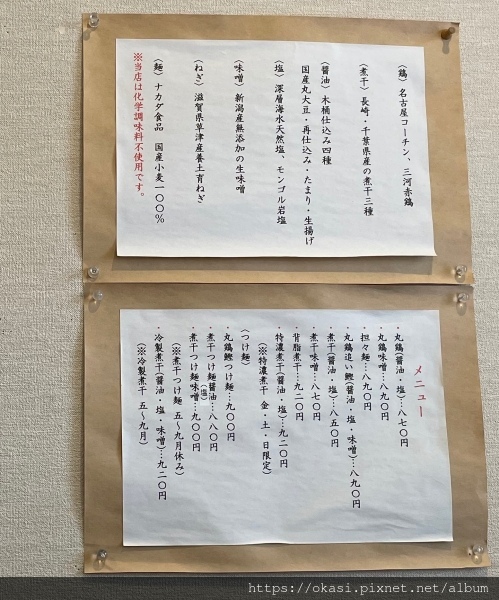 〈鶏〉名古屋コーチン、三河赤鶏
〈煮干〉長崎・千葉県産の煮干三種
〈醤油〉木桶仕込み四種
国産丸大豆・再仕込み・たまり・生揚げ
〈塩〉深層海水天然塩、モンゴル岩塩
〈味噌〉新潟産無添加の生味噌
〈ねぎ〉滋賀県草津産養土育ねぎ
〈麺〉ナカタ食品 国産小麦一〇〇%
※当店は化学調味料不使用です。
メニュー
・丸鶏(醤油・塩)…八七〇円
・丸鶏味噌…八九〇円
・担々麺…八九〇円
・丸鶏追い鰹(醤油・塩・味噌)…八九〇円
・煮干(醤油・塩)…八五〇円
・煮干味噌…八七〇円
・背脂煮干…九二〇円
・特濃煮干(醤油・塩)…九二〇円
(※特濃煮干 金・土・日限定)
〈つけ麺〉
・丸鶏鰹つけ麺…九〇〇円
・煮干つけ麺醤油(塩)…八八〇円
・煮干つけ麺味噌…九〇〇円
(※煮干つけ麺 五〜九月休み)
・冷製煮干(醤油・塩・味噌)…九二〇円
(※冷製煮干 五〜九月)
https://okasi.pixnet.net/album